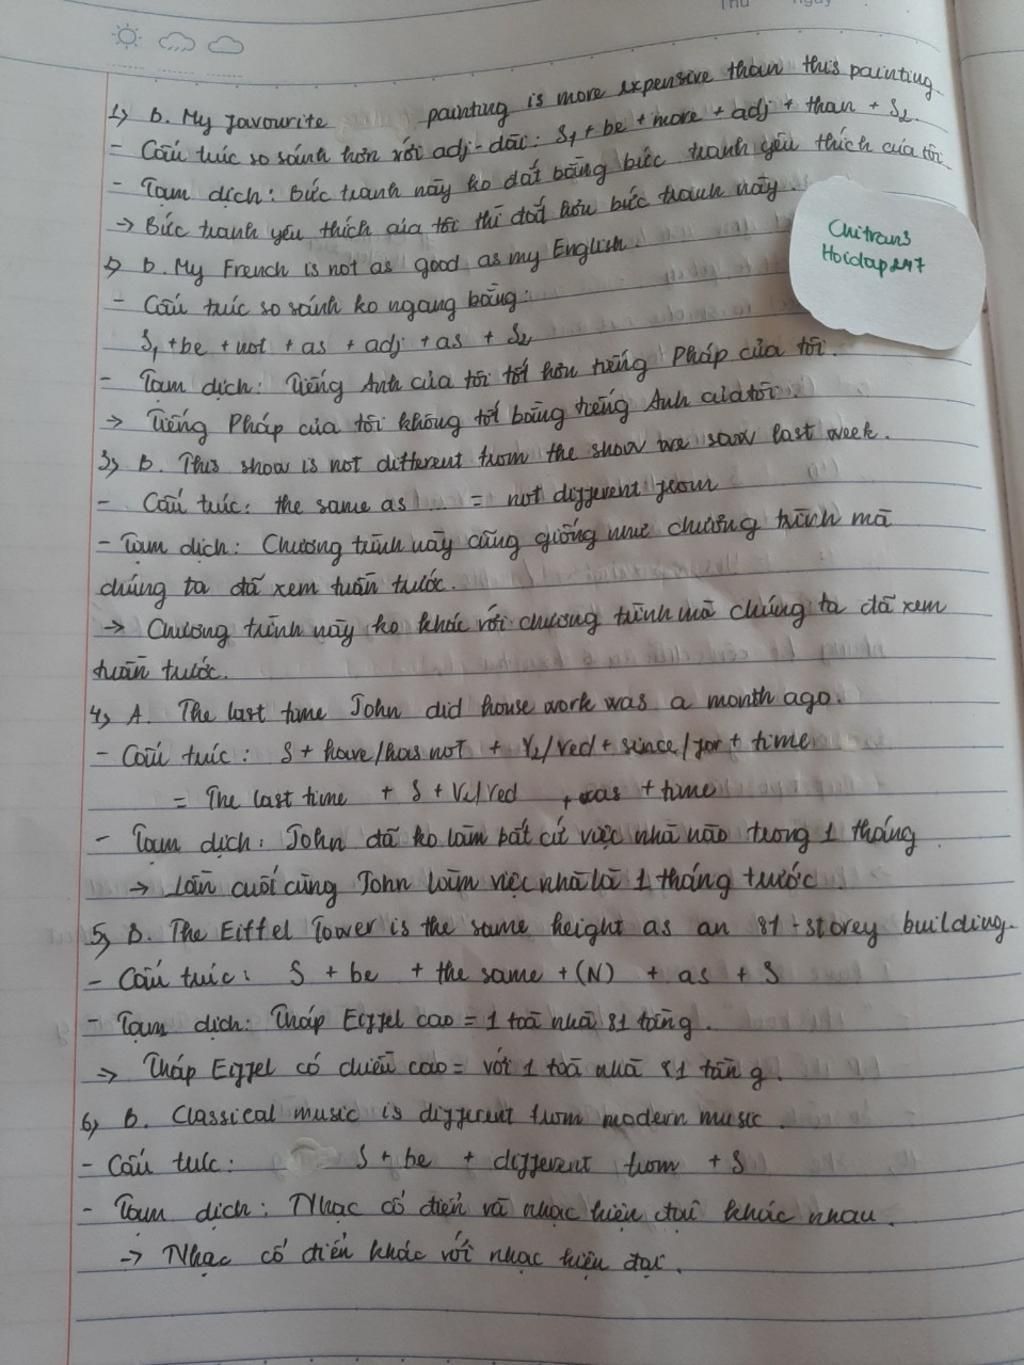 Thứ Ngày
1, B. My favourite painting is more expensive than this painting.
- Cấu trúc so sánh hơn với adj-dài: S1 + be + more + adj + than + S2.
- Tạm dịch: Bức tranh này ko đắt bằng bức tranh yêu thích của tôi
→ Bức tranh yêu thích của tôi thì đắt hơn bức tranh này.
Chitrans
Hoidap247
D. My French is not as good as my English.
- Cấu trúc so sánh ko ngang bằng:
S1 + be + not + as + adj + as + S2
- Tạm dịch: Tiếng Anh của tôi tốt hơn tiếng Pháp của tôi.
→ Tiếng Pháp của tôi không tốt bằng tiếng Anh của tôi.
3, B. This show is not different from the show we saw last week.
- Cấu trúc: the same as ... = not different from
- Tạm dịch: Chương trình này cũng giống như chương trình mà
chúng ta đã xem tuần trước.
→ Chương trình này ko khác với chương trình mà chúng ta đã xem
tuần trước.
4, A. The last time John did house work was a month ago.
- Cấu trúc: S + have/has not + V3/Ved + since/for + time
= The last time + S + V2/Ved + was + time
- Tạm dịch: John đã ko làm bất cứ việc nhà nào trong 1 tháng
→ Lần cuối cùng John làm việc nhà là 1 tháng trước.
5, B. The Eiffel Tower is the same height as an 81-storey building.
- Cấu trúc: S + be + the same + (N) + as + S
- Tạm dịch: Tháp Eiffel cao = 1 toà nhà 81 tầng.
→ Tháp Eiffel có chiều cao = với 1 toà nhà 81 tầng.
6, B. Classical music is different from modern music.
- Cấu trúc: S + be + different from + S
- Tạm dịch: Nhạc cổ điển và nhạc hiện đại khác nhau.
→ Nhạc cổ điển khác với nhạc hiện đại.